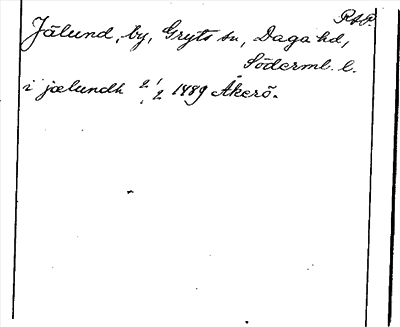 R.A.P.
Jälund, by, Gryts sn, Daga hd,
Söderml. l.
i jælundh 2 1/2 1489 Åkerö.